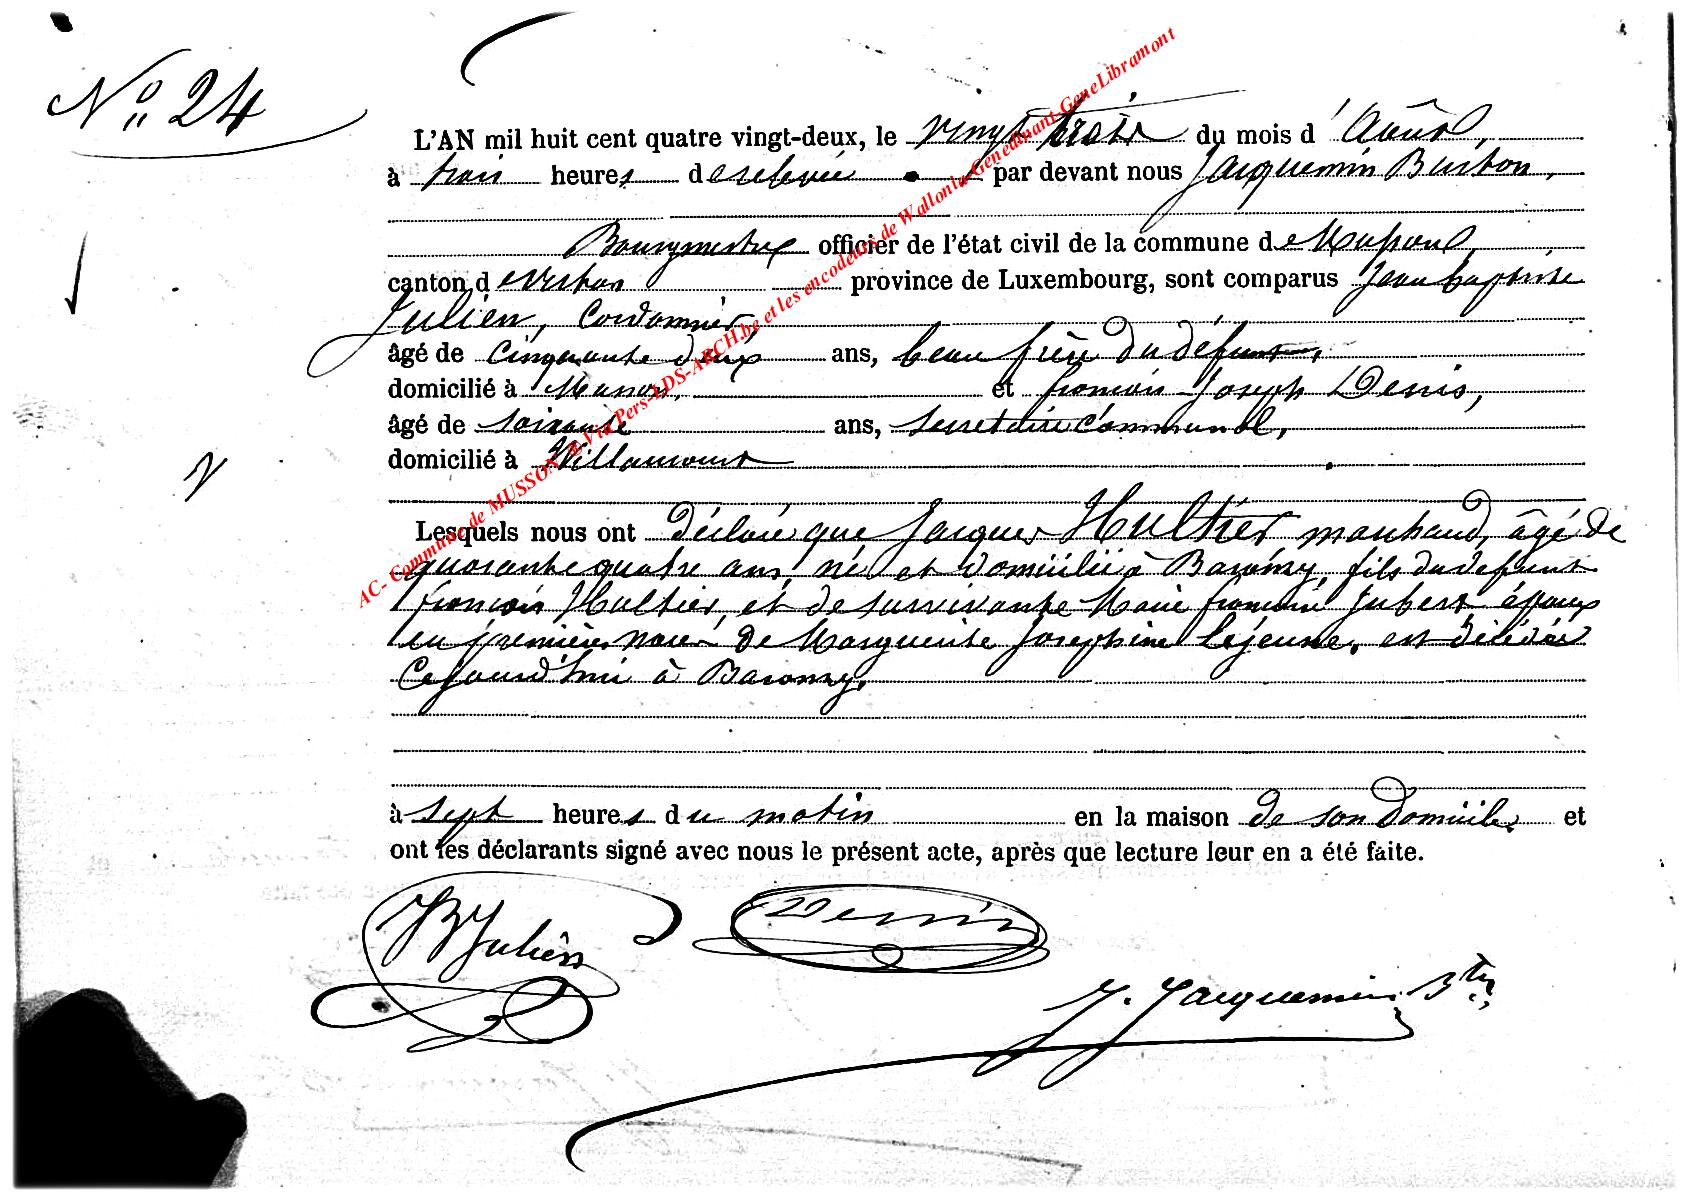 No 24
L'AN mil huit cent quatre vingt-deux, le vingt trois du mois d'Août,
à trois heures de relevée par devant nous Jacquemin Burton,
Bourgmestre officier de l'état civil de la commune de Musson,
canton de Virton province de Luxembourg, sont comparus Jean baptiste
Julien, Cordonnier,
âgé de Cinquante deux ans, beau frère du défunt,
domicilié à Musson, et françois Joseph Denis,
âgé de soixante ans, secrétaire Communal,
domicilié à Willancourt
Lesquels nous ont déclaré que Jacques Hultier marchand, âgé de
quarante quatre ans, né et domicilié à Baranzy, fils du défunt
françois Hultier, et de survivante Marie françoise Jubert, époux
en premières noces de Marguerite Joséphine Lejeune, est décédé
Cejourd'hui à Baranzy,
à sept heures du matin en la maison de son Domicile, et
ont les déclarants signé avec nous le présent acte, après que lecture leur en a été faite.
JB Julien Denis
J. Jacquemin Btre
AC- Commune de MUSSON & Via Pers-LDS-ARCH.be et les encodeurs de Wallonia-Genedinant-GeneLibramont